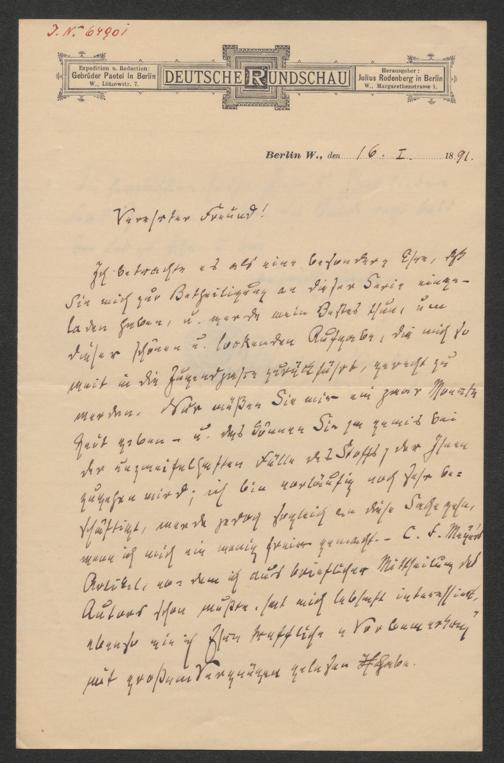 I. N. 64901
Expedition u. Redaction:
Gebrüder Paetel in Berlin
W., Lützowstr. 7.
DEUTSCHE RUNDSCHAU
Herausgeber:
Julius Rodenberg in Berlin
W., Margarethenstrasse 1.
Berlin W., den 16. I. 1891.
Verehrter Freund!
Ich betrachte es als eine besondere Ehre, daß
Sie mich zur Betheiligung an dieser Serie einge-
laden haben, u. werde mein Bestes thun, um
dieser schönen u. lockenden Aufgabe, die mich so
weit in die Jugendjahre zurückführt, gerecht zu
werden. Nur müßen Sie mir ein paar Monate
Zeit geben – u. das können Sie ja gewiß bei
der unzweifelhaften Fülle des Stoffs, der Ihnen
zugehen wird; ich bin vorläufig noch sehr be-
schäftigt, werde jedoch sogleich an diese Sache gehn,
wenn ich mich ein wenig freier gemacht. – C. F. Meyers
Artikel, von dem ich aus brieflicher Mittheilung des
Autors schon wußte, hat mich lebhaft interessirt,
ebenso wie ich Ihre treffliche „Vorbemerkung"
mit großem Vergnügen gelesen habe.